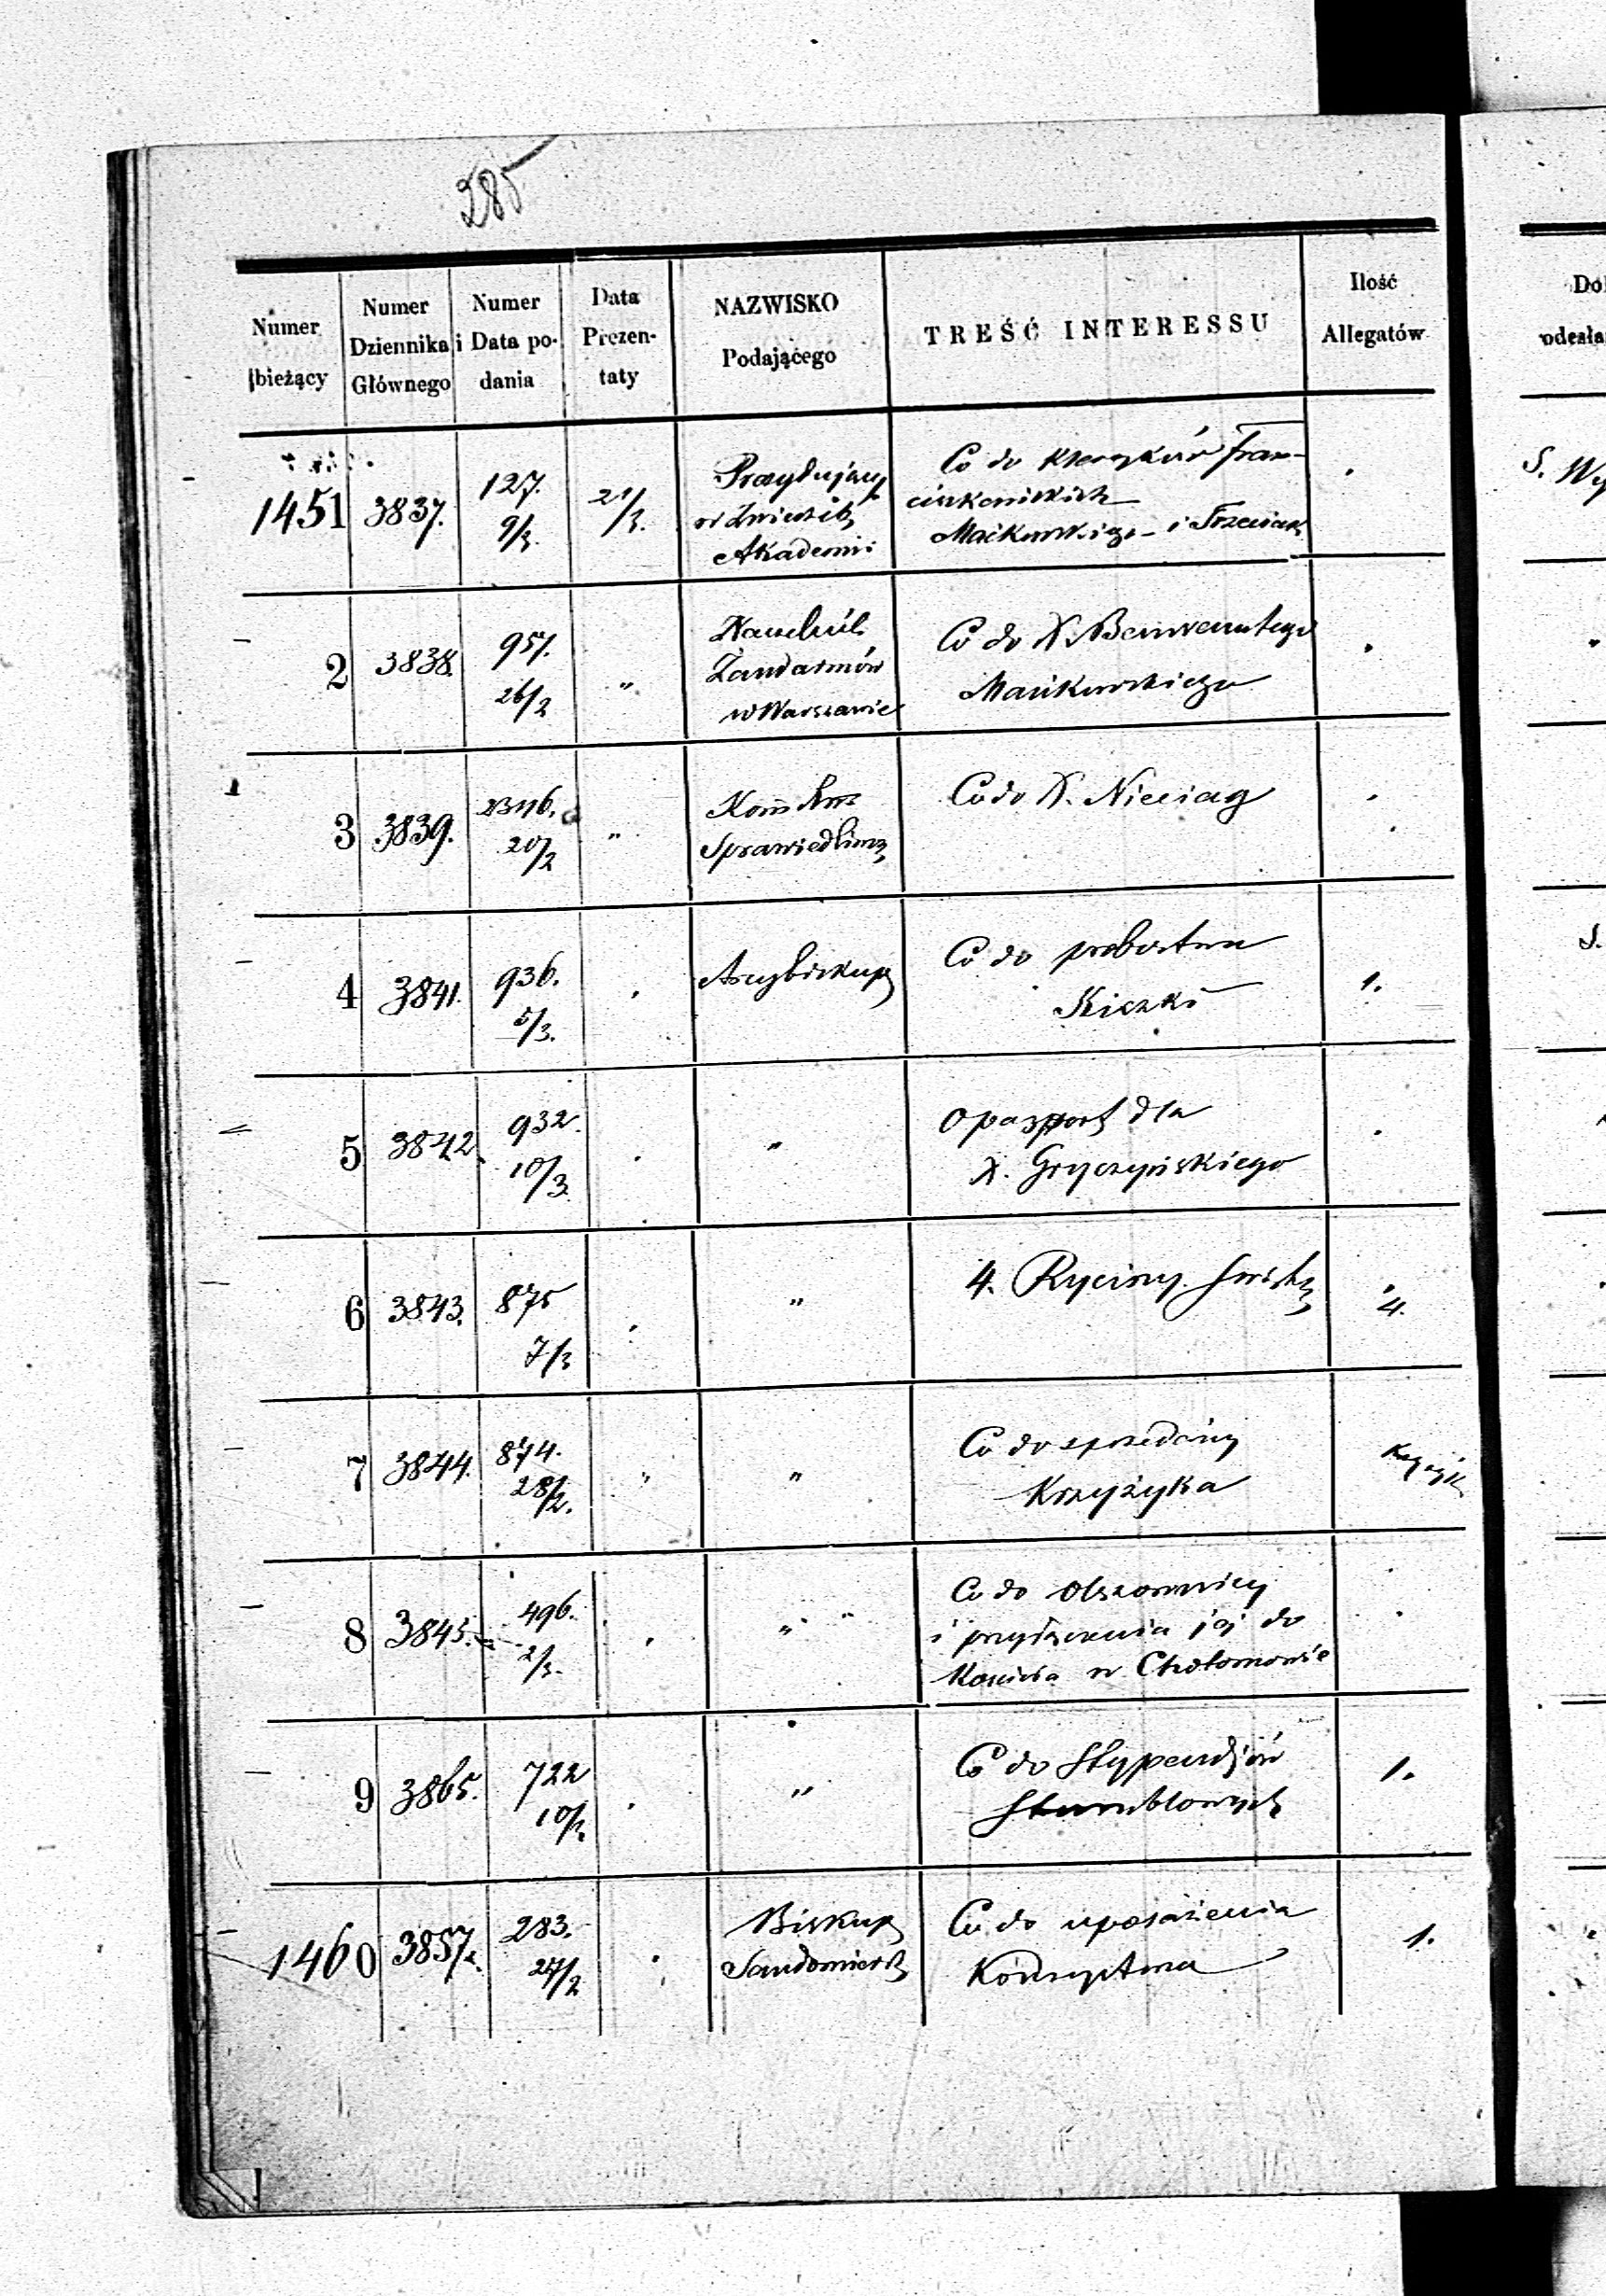 285
Numer bieżący
Numer Dziennika Głównego
Numer i Data podania
Data Prezentaty
NAZWISKO Podającego
TREŚĆ INTERESSU
Ilość Allegatów
1451 3837. 127. 9/3. 21/3. Co do Kleryków Fran-
ciszkańskich
Akademii Maćkowskiego i Trzeciak
2 3838. 957. 26/2 " Żandarmów w Warszawie Co do X. Benwenutego
Maćkowskiego
3 3839. 20/2 " Sprawiedliwoś Co do X. Nieciag
4 3841. 936. 5/3. Arcybiskup Co do probostwa 1.
Kiczki
5 3842. 932. 10/3. " O paszport dla
X. Gryczyńskiego
6 3843. 875 7/3 " 4. Ryciny 4.
7 3844. 874. 28/2. " " Co do sprzedaży
Krzyżyka
8 3845. 496. 2/3. " " Co do
i przyłączenia jej do
Kościoła w Chotomowie
9 3865. 722 10/3 " Co do Stypendjów 1.
1460 3857. 283. 27/2 Biskup Co do uposażenia 1.
Sandomiersk
Do
odesła